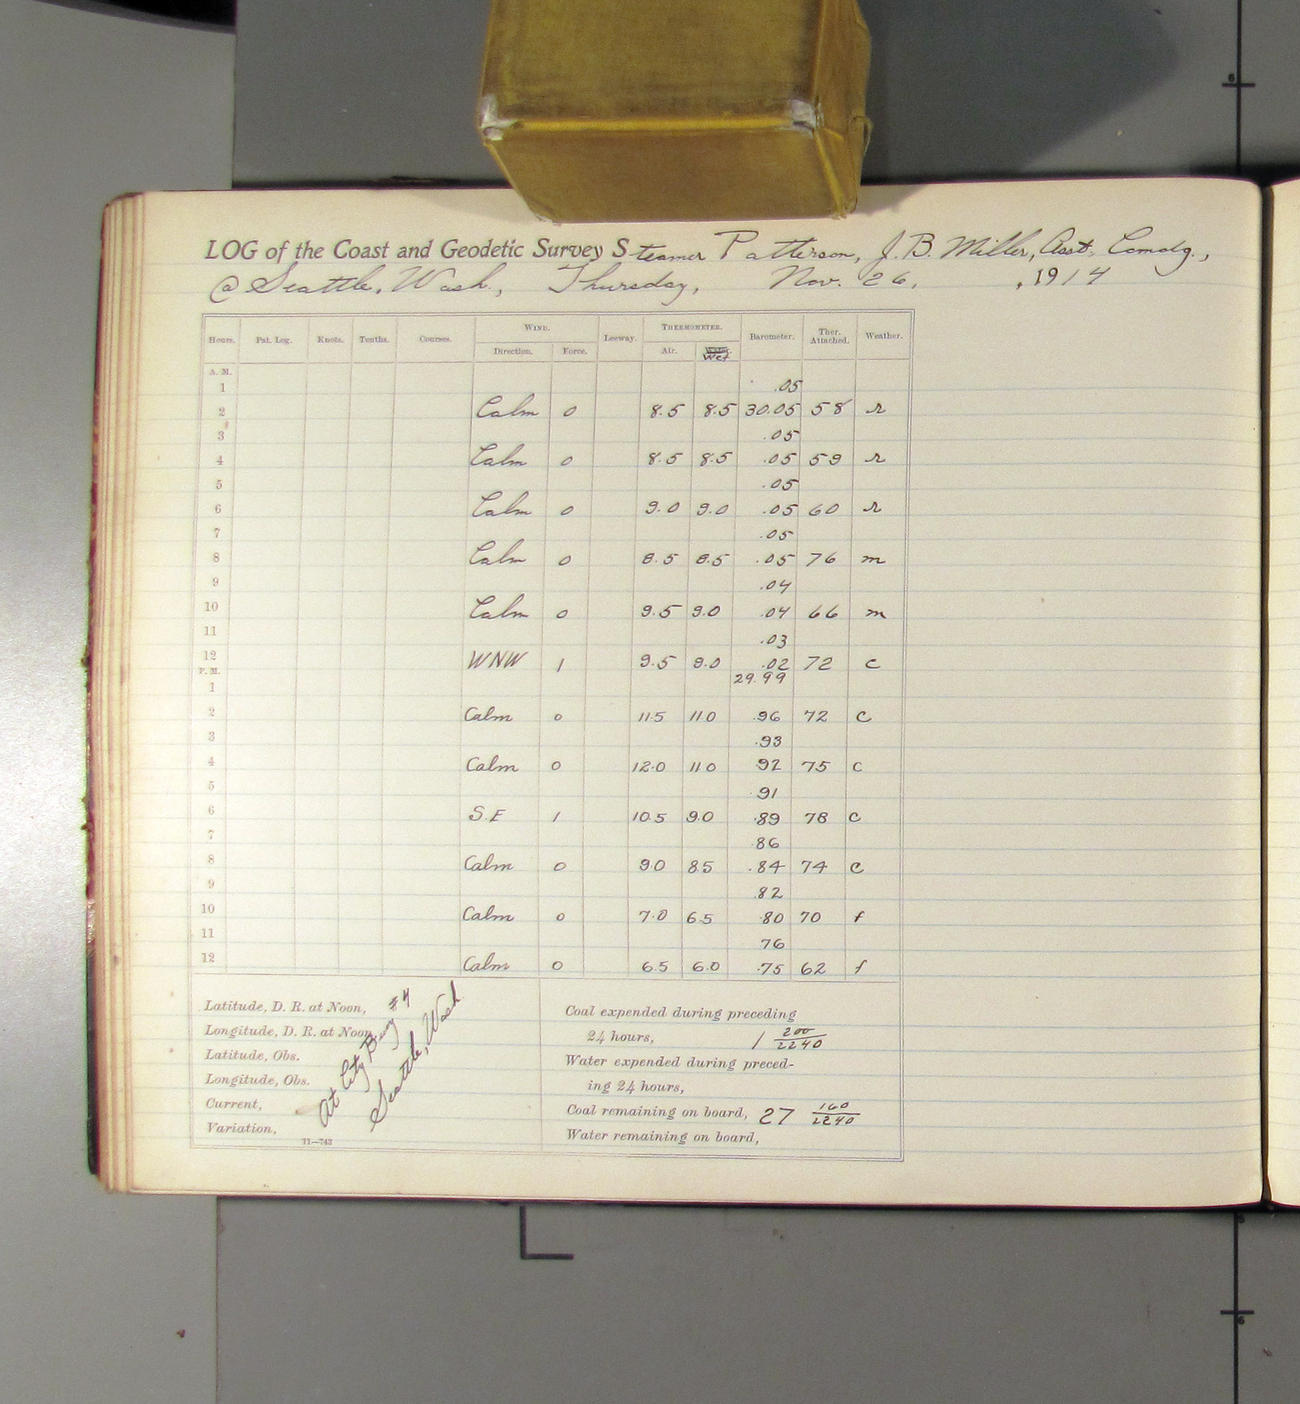 LOG of the Coast and Geodetic Survey Steamer Patterson, J. B. Miller, Asst. Comdg.,
@ Seattle, Wash., Thursday, Nov. 26, , 1914
Hours. Pat. Log. Knots. Tenths. Courses. WIND. Leeway. THERMOMETER. Barometer. Ther. Attached. Weather.
Direction. Force. Air. Wet
A. M.
1 .05
2 Calm 0 8.5 8.5 30.05 58 r
3 .05
4 Calm 0 8.5 8.5 .05 59 r
5 .05
6 Calm 0 9.0 9.0 .05 60 r
7 .05
8 Calm 0 8.5 8.5 .05 76 m
9 .04
10 Calm 0 9.5 9.0 .04 66 m
11 .03
12 WNW 1 9.5 9.0 .02 72 c
P. M.
1 29.99
2 Calm 0 11.5 11.0 .96 72 c
3 .93
4 Calm 0 12.0 11.0 92 75 c
5 .91
6 S.E 1 10.5 9.0 .89 78 c
7 .86
8 Calm 0 9.0 8.5 .84 74 c
9 .82
10 Calm 0 7.0 6.5 .80 70 f
11 76
12 Calm 0 6.5 6.0 .75 62 f
Latitude, D. R. at Noon,
Longitude, D. R. at Noon
Latitude, Obs.
Longitude, Obs.
Current,
Variation,
At City Buoy #4
Seattle, Wash
11—743
Coal expended during preceding
24 hours, 1 200/2240
Water expended during preced-
ing 24 hours,
Coal remaining on board, 27 160/2240
Water remaining on board,